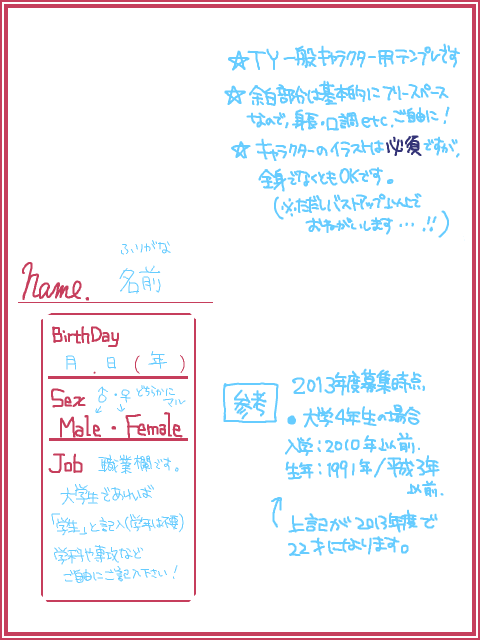 ☆TY一般キャラクター用テンプレです
☆余白部分は基本的にフリースペース
なので、身長・口調etc.ご自由に!
☆キャラクターのイラストは必須ですが、
全身でなくともOKです。
(※ただしバストアップ以上で
おねがいします…!!)
ふりがな
Name. 名前
BirthDay
月.日(年)
Sex ♂・♀ どちらかに
マル
Male・Female
Job 職業欄です。
大学生であれば
「学生」と記入(学科は不要)
学科や専攻など
ご自由にご記入下さい!
参考
2013年度募集時点,
●大学4年生の場合
入学:2010年以前.
生年:1991年/平成3年
以前.
上記が2013年度で
22才になります。